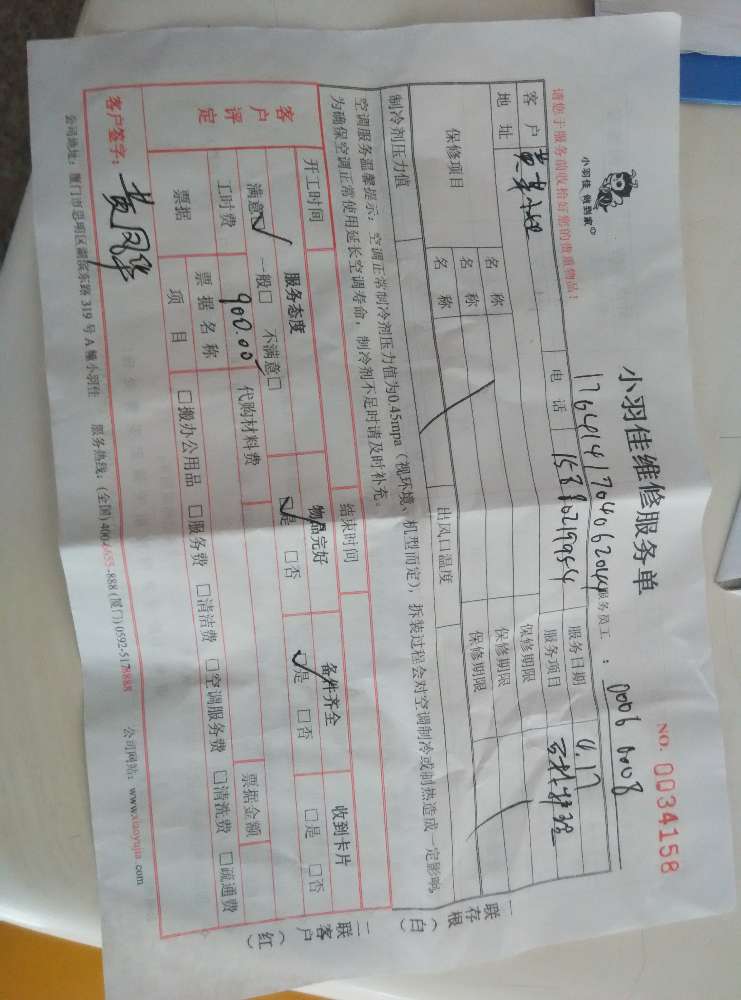 小羽佳 做到家
小羽佳维修服务单
NO. 0034158
服务员工: 0006 0008
请您于服务前收拾好您的贵重物品!
1764141704062044
客户 黄小姐 服务日期
地址 电话 15880219954 服务项目
保修项目 名称 保修期限
名称 保修期限
名称 保修期限
制冷剂压力值 出风口温度
空调服务温馨提示:空调正常制冷剂压力值为0.45mpa(视环境、机型而定),拆装过程会对空调制冷或制热造成一定影响,
为确保空调正常使用延长空调寿命,制冷剂不足时请及时补充。
一联存根(白)
二联客户(红)
客户评定 开工时间 结束时间
服务态度 物品完好 备件齐全 收到卡片
满意☑ 一般□ 不满意□ ☑是 □否 ☑是 □否 □是 □否
工时费 900.00 代购材料费
票据 票据名称 票据金额
项目 □搬办公用品 □服务费 □清洁费 □空调服务费 □清洗费 □疏通费
客户签字: 黄凤华
公司地址:厦门市思明区湖滨东路319号A幢小羽佳 服务热线:(全国)400-1655-888(厦门)0592-5178888 公司网站:www.xiaoyujia.com